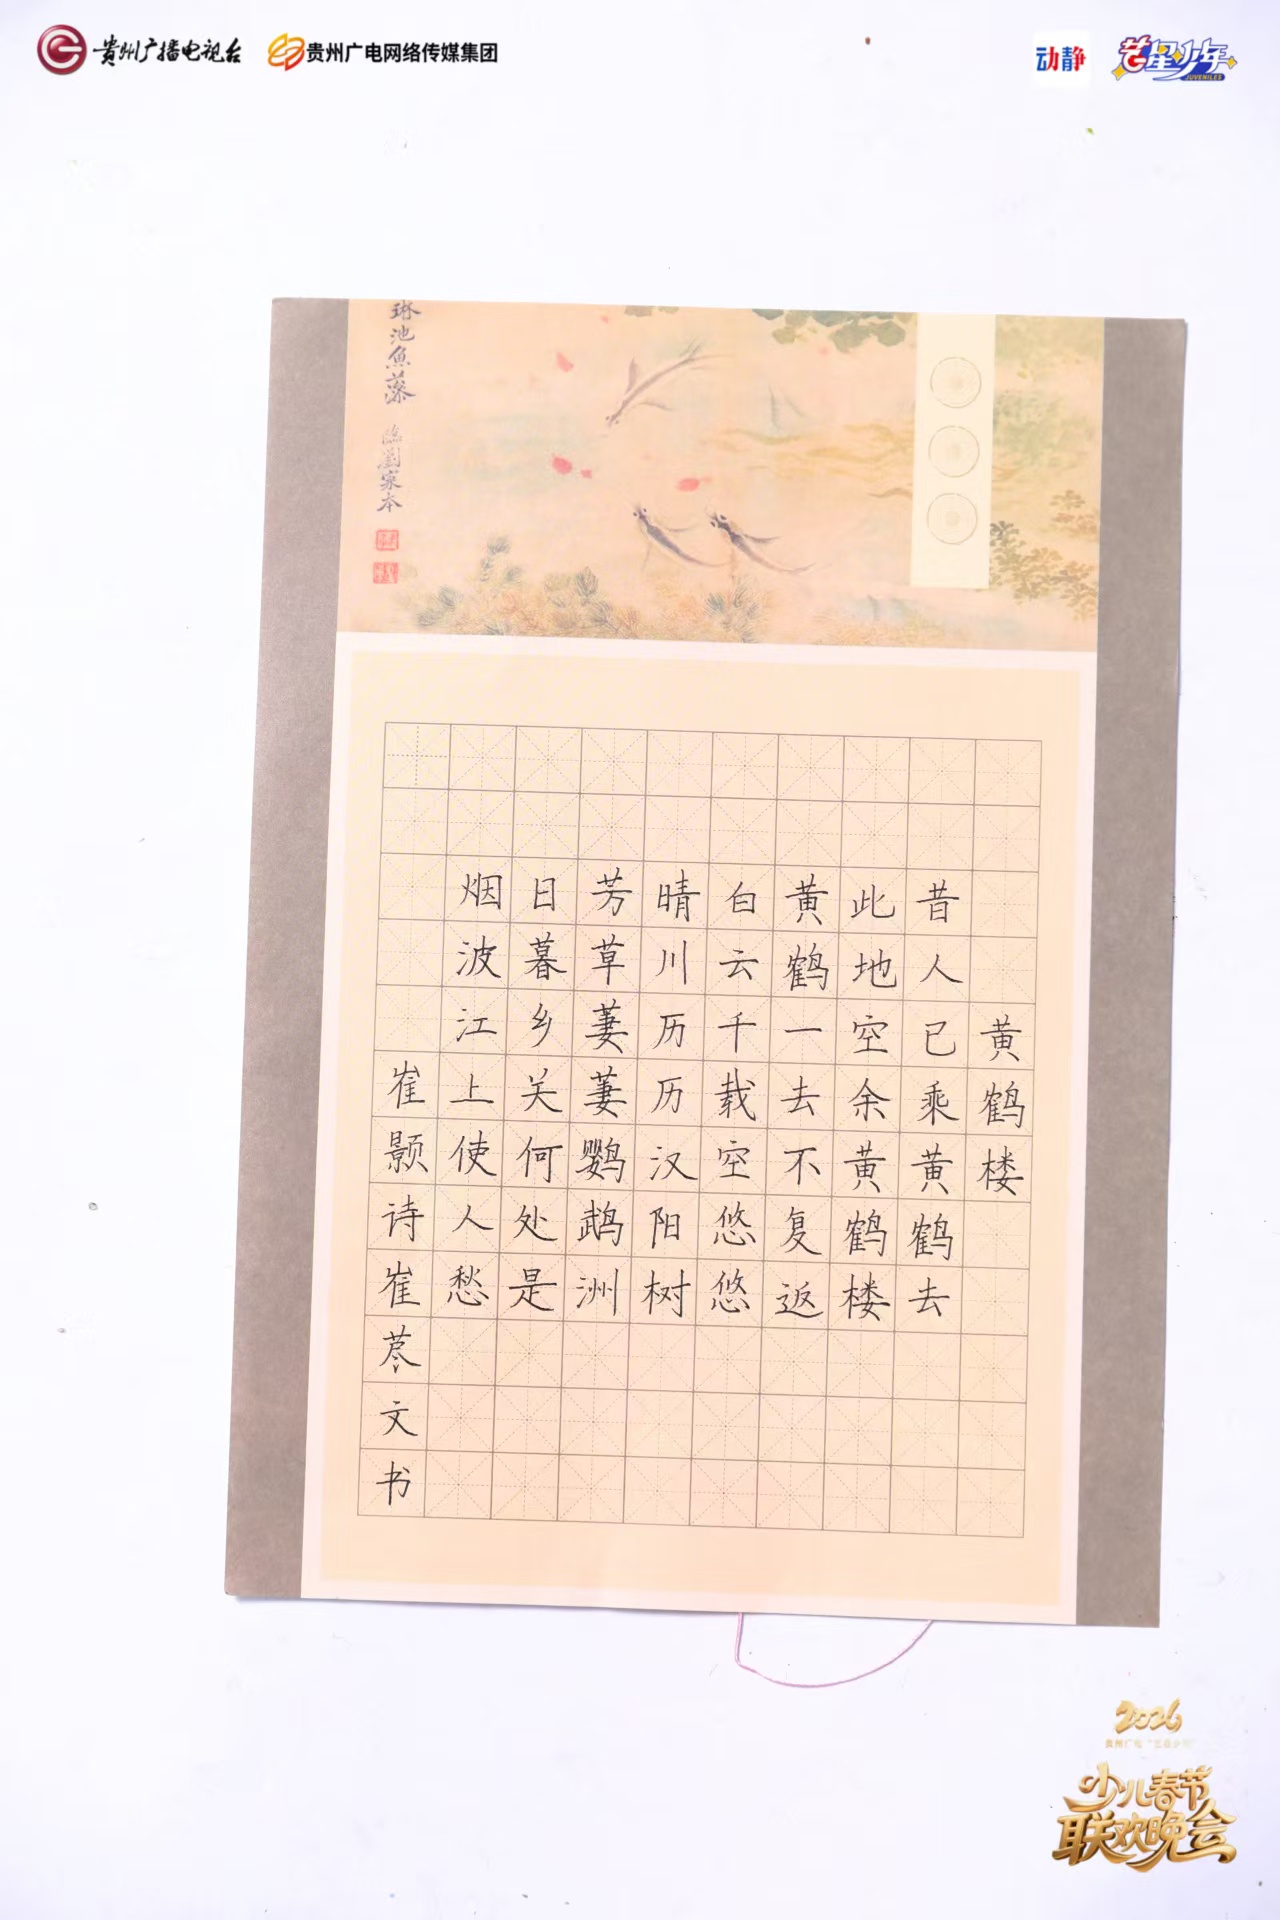 贵州广播电视台
贵州广电网络传媒集团
动静
艺星少年
JUVENILES
琳池魚藻
臨劉寀本
黄鹤楼
昔人已乘黄鹤去
此地空余黄鹤楼
黄鹤一去不复返
白云千载空悠悠
晴川历历汉阳树
芳草萋萋鹦鹉洲
日暮乡关何处是
烟波江上使人愁
崔颢诗崔荩文书
2026
少儿春节
联欢晚会